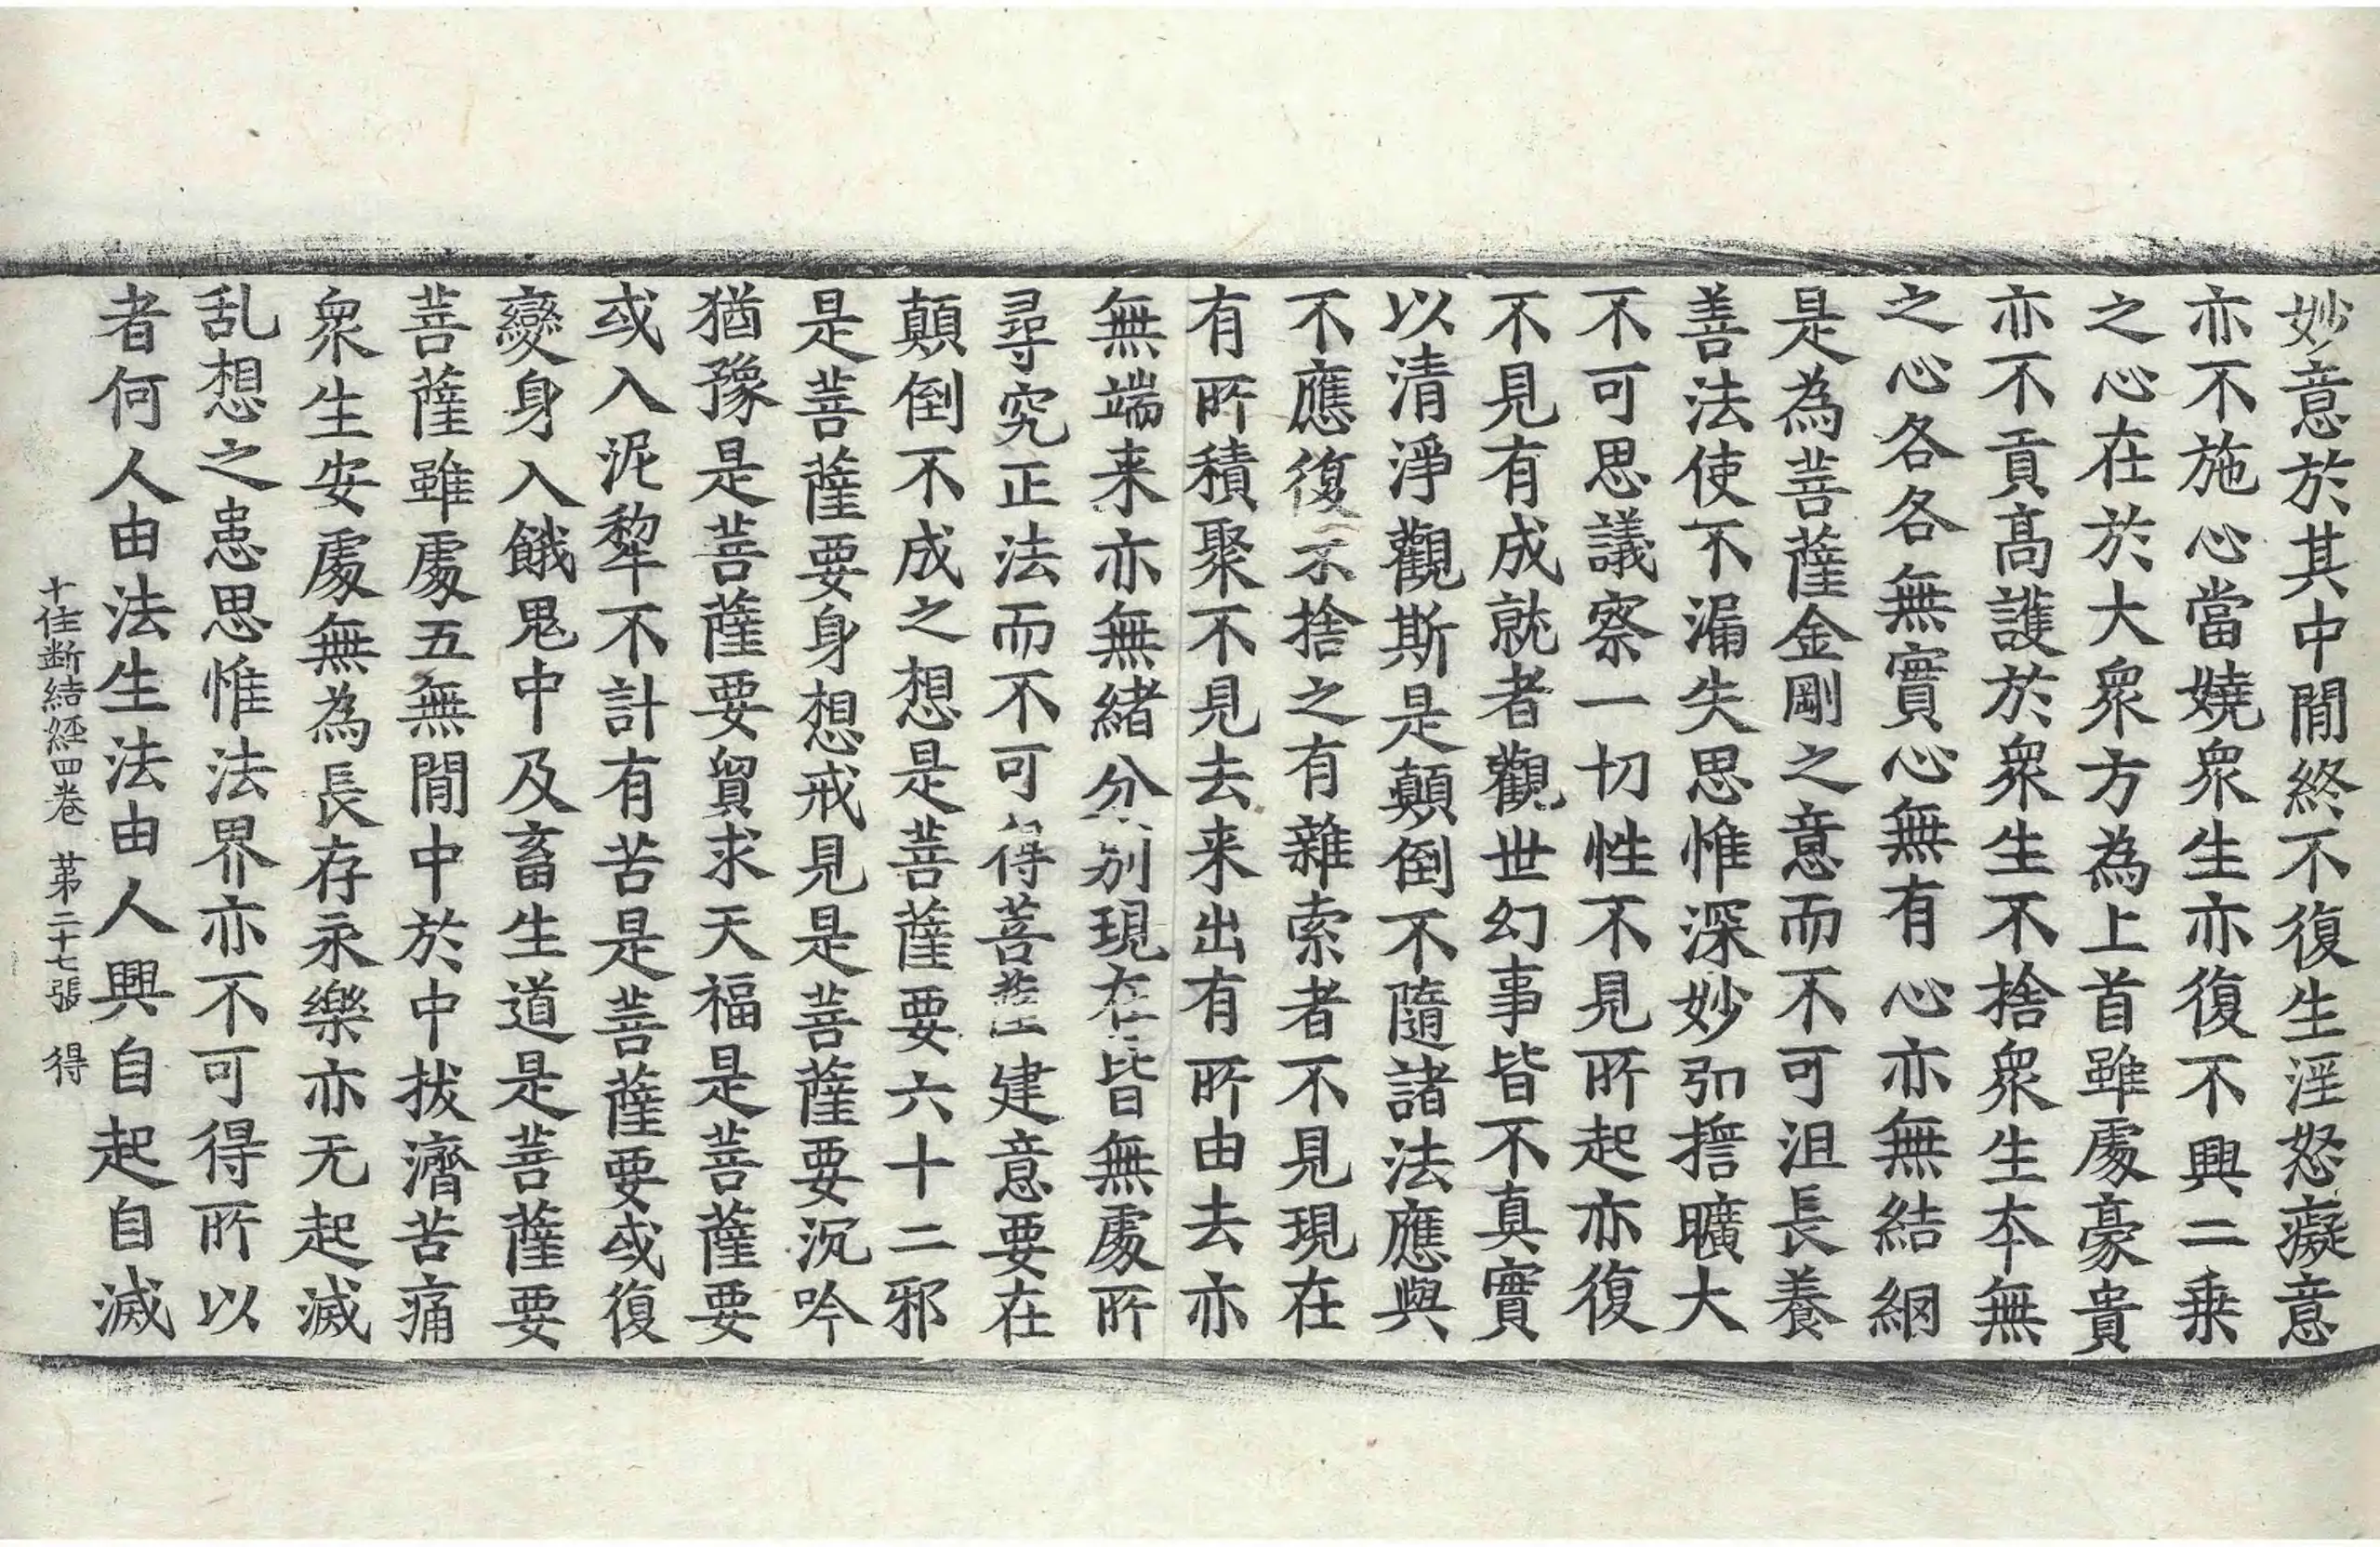 妙意於其中間終不復生淫怒癡意
亦不施心當嬈衆生亦復不興二乗
之心在於大衆方為上首雖處豪貴
亦不貢高護於衆生不捨衆生本無
之心各各無實心無有心亦無結網
是為菩薩金剛之意而不可沮長養
善法使不漏失思惟深妙弘誓曠大
不可思議察一切性不見所起亦復
不見有成就者觀世幻事皆不真實
以清淨觀斯是顛倒不隨諸法應與
不應復不捨之有雜索者不見現在
有所積聚不見去来出有所由去亦
無端来亦無緒分別現在皆無處所
尋究正法而不可得菩薩建意要在
顛倒不成之想是菩薩要六十二邪
是菩薩要身想戒見是菩薩要沉吟
猶豫是菩薩要貿求天福是菩薩要
或入泥犂不計有苦是菩薩要或復
變身入餓鬼中及畜生道是菩薩要
菩薩雖處五無間中於中拔濟苦痛
衆生安處無為長存永樂亦无起滅
乱想之患思惟法界亦不可得所以
者何人由法生法由人興自起自滅
十住断結経四巻 苐二十七張 得